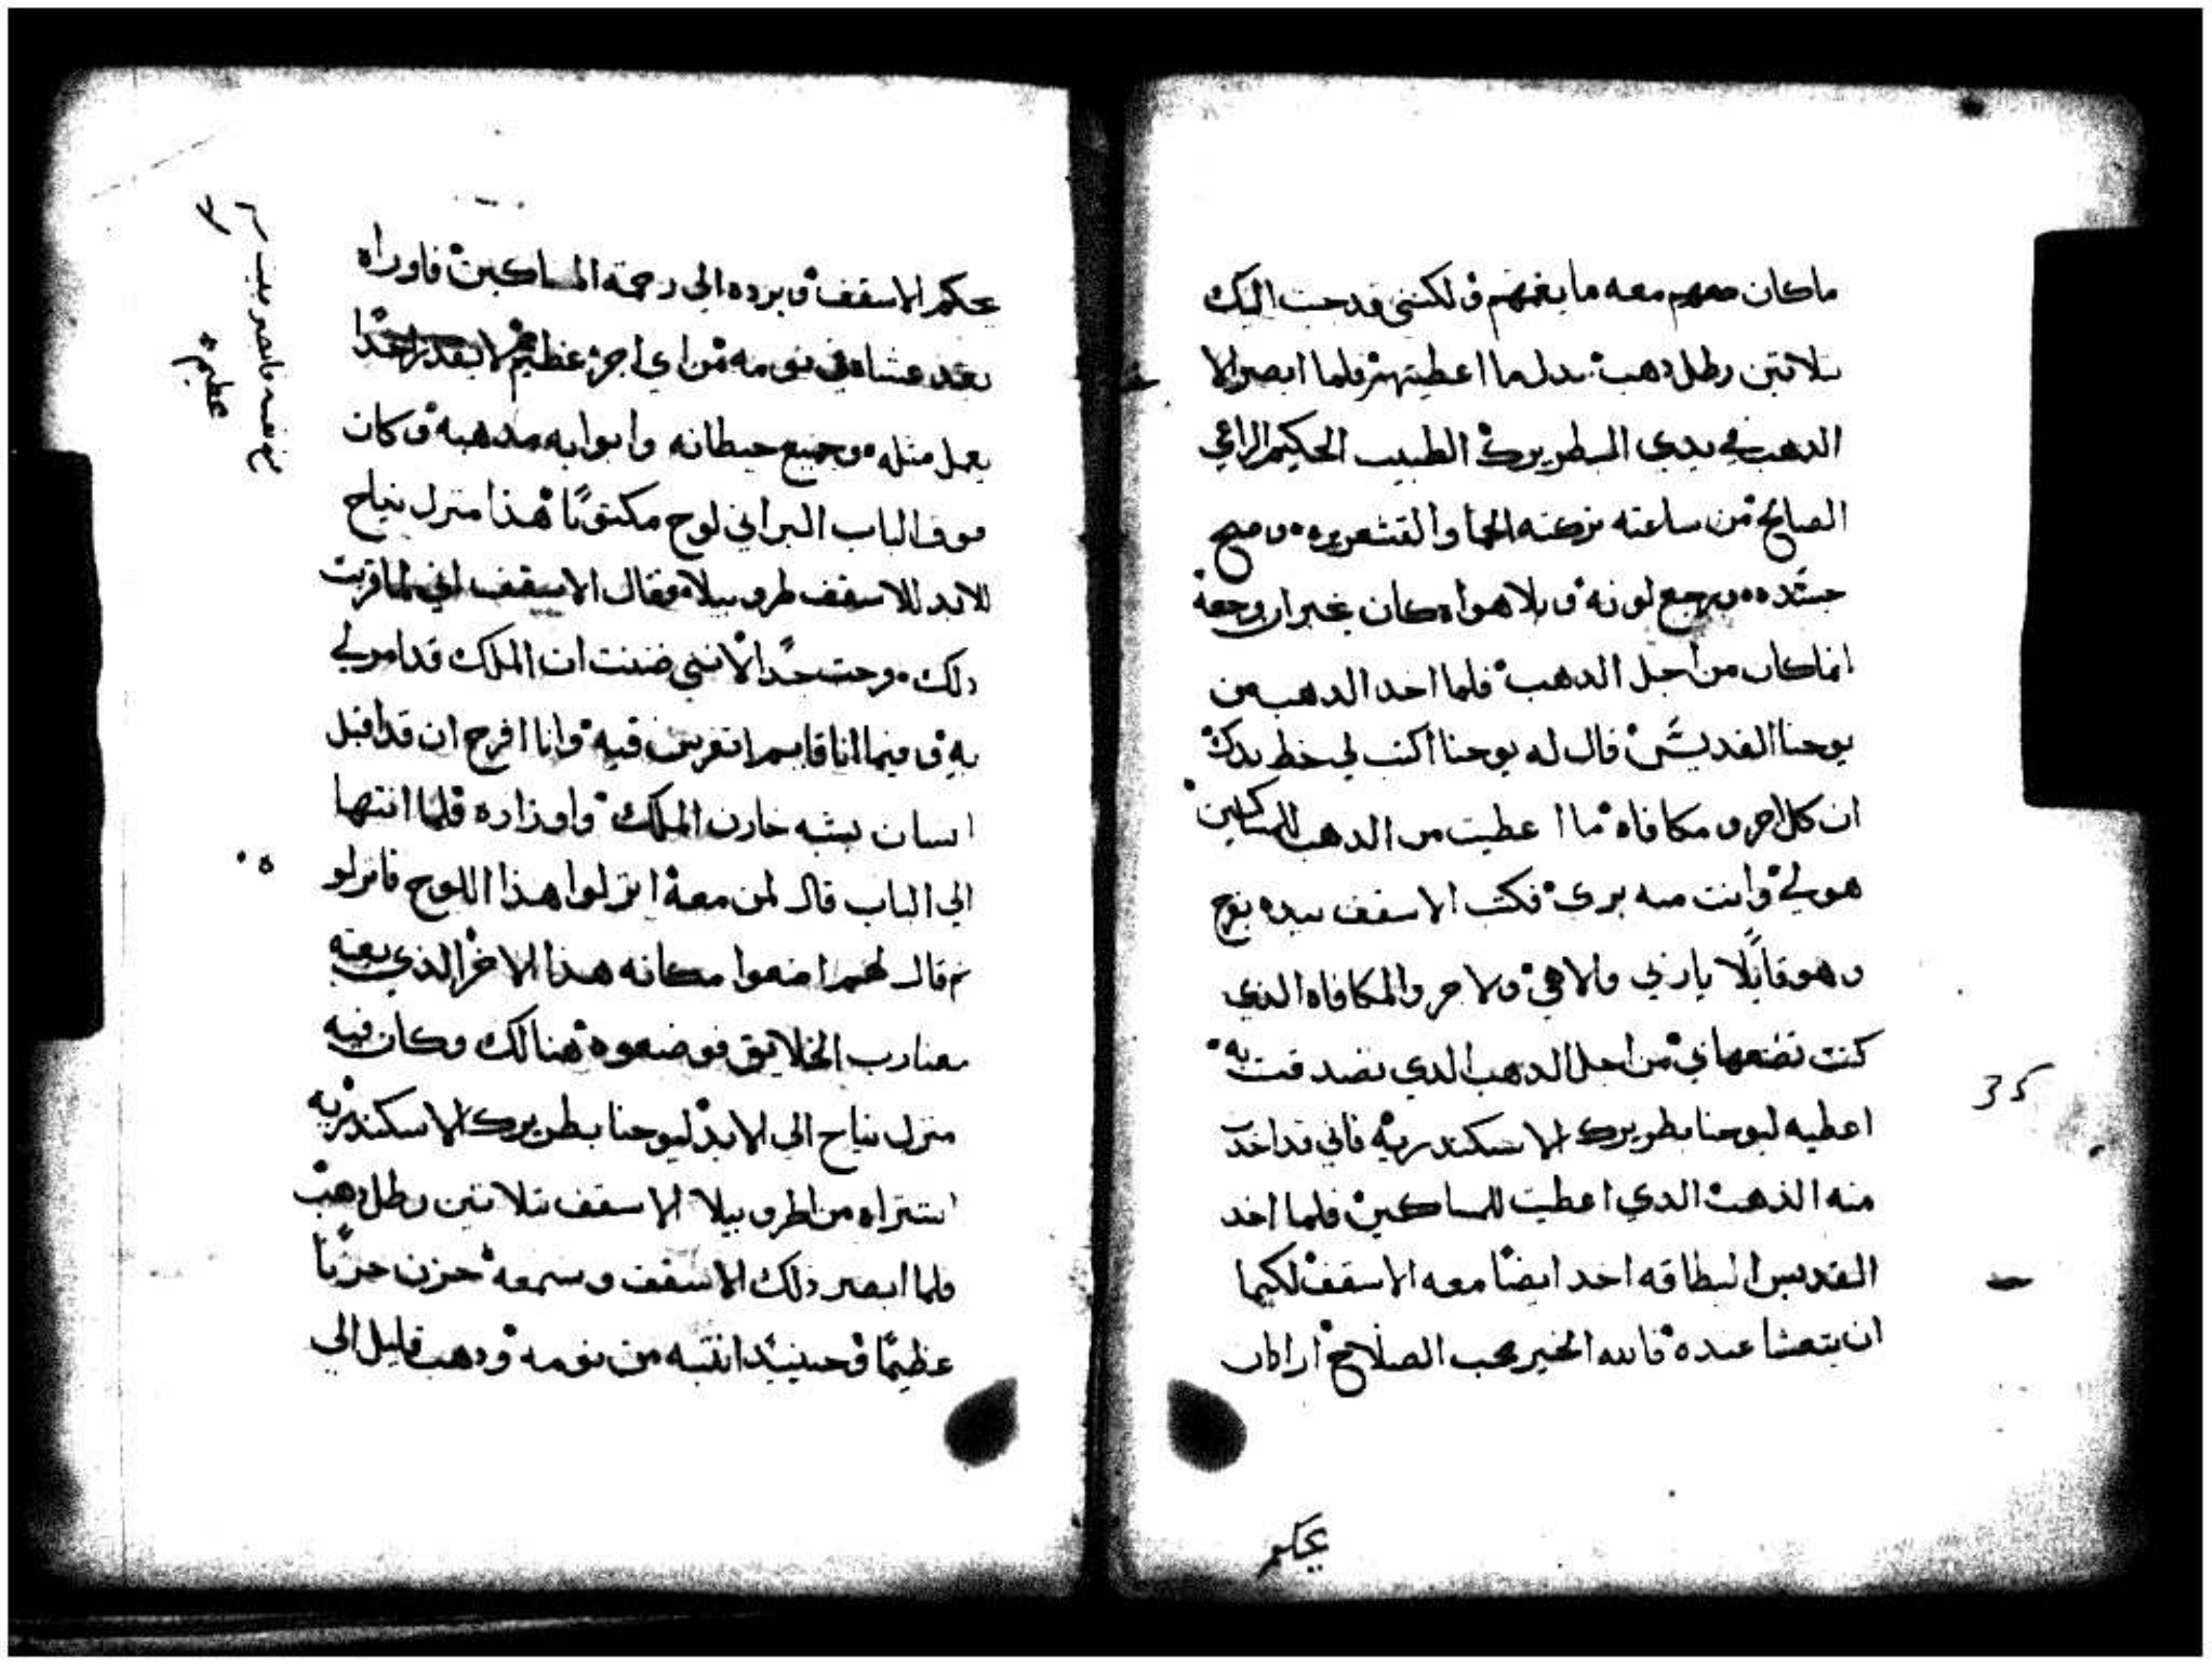 ماكان معهم معه ما يغنيهم ولكنني قد جيت اليك
بتلاتين رطل دهب بدل ما اعطيتهم فلما ابصر الا
الدهب في يدي البطريرك الطبيب الحكيم الراعي
الصالح من ساعته تركته الحما والقشعريره وصح
جسده ورجع لونه وبلا هواه كان غير ان وجعه
انما كان من اجل الدهب فلما اخد الدهب من
يوحنا القديس قال له يوحنا اكتب لي خط يدك
ان كل اجر ومكافاه ما اعطيت من الدهب للمساكين
هو لي وانت منه بري فكتب الاسقف بيده
وهو قايلا يا ربي والاهي والاجر والمكافاه الذي
كنت تضعها لي من اجل الدهب الدي تصدقت به
اعطيه ليوحنا بطريرك الاسكندريه فاني قد اخدت
منه الذهب الدي اعطيت للمساكين فلما اخد
القديس البطاقه اخد ايضا معه الاسقف لكيما
ان يتعشا عنده فالله الخير محب الصلاح اراد ان
يحكم
35
يحكم الاسقف ويرده الي رحمة المساكين فاوراه
بعد عشاه في نومه من اي اجر عظيم لا يقدر احدا
يعمل مثله وجميع حيطانه وابوابه مدهبه وكان
فوق الباب البراني لوح مكتوبا هذا منزل نياح
للابد للاسقف طرو بيلا فقال الاسقف اني لما قريت
دلك فرحت جدا لانني ضننت ان الملك قد امر لي
به وفيما انا قايم اتفرس فيه وانا افرح ان قد اقبل
انسان يشبه خازن الملك واوزاره فلما انتها
الي الباب قال لمن معه انزلوا هذا اللوح فانزلو
تم قال لهم اضعوا مكانه هدا الاخر الذي بعثه
معنا رب الخلايق فوضعوه هنالك وكان فيه
منزل نياح الي الابد ليوحنا بطريرك الاسكندريه
اشتراه من طرو بيلا الاسقف بتلاتين رطل دهب
فلما ابصر دلك الاسقف وسمعه حزن حزنا
عظيما وحينيد انتبه من نومه ودهب قليل الي
عظيم